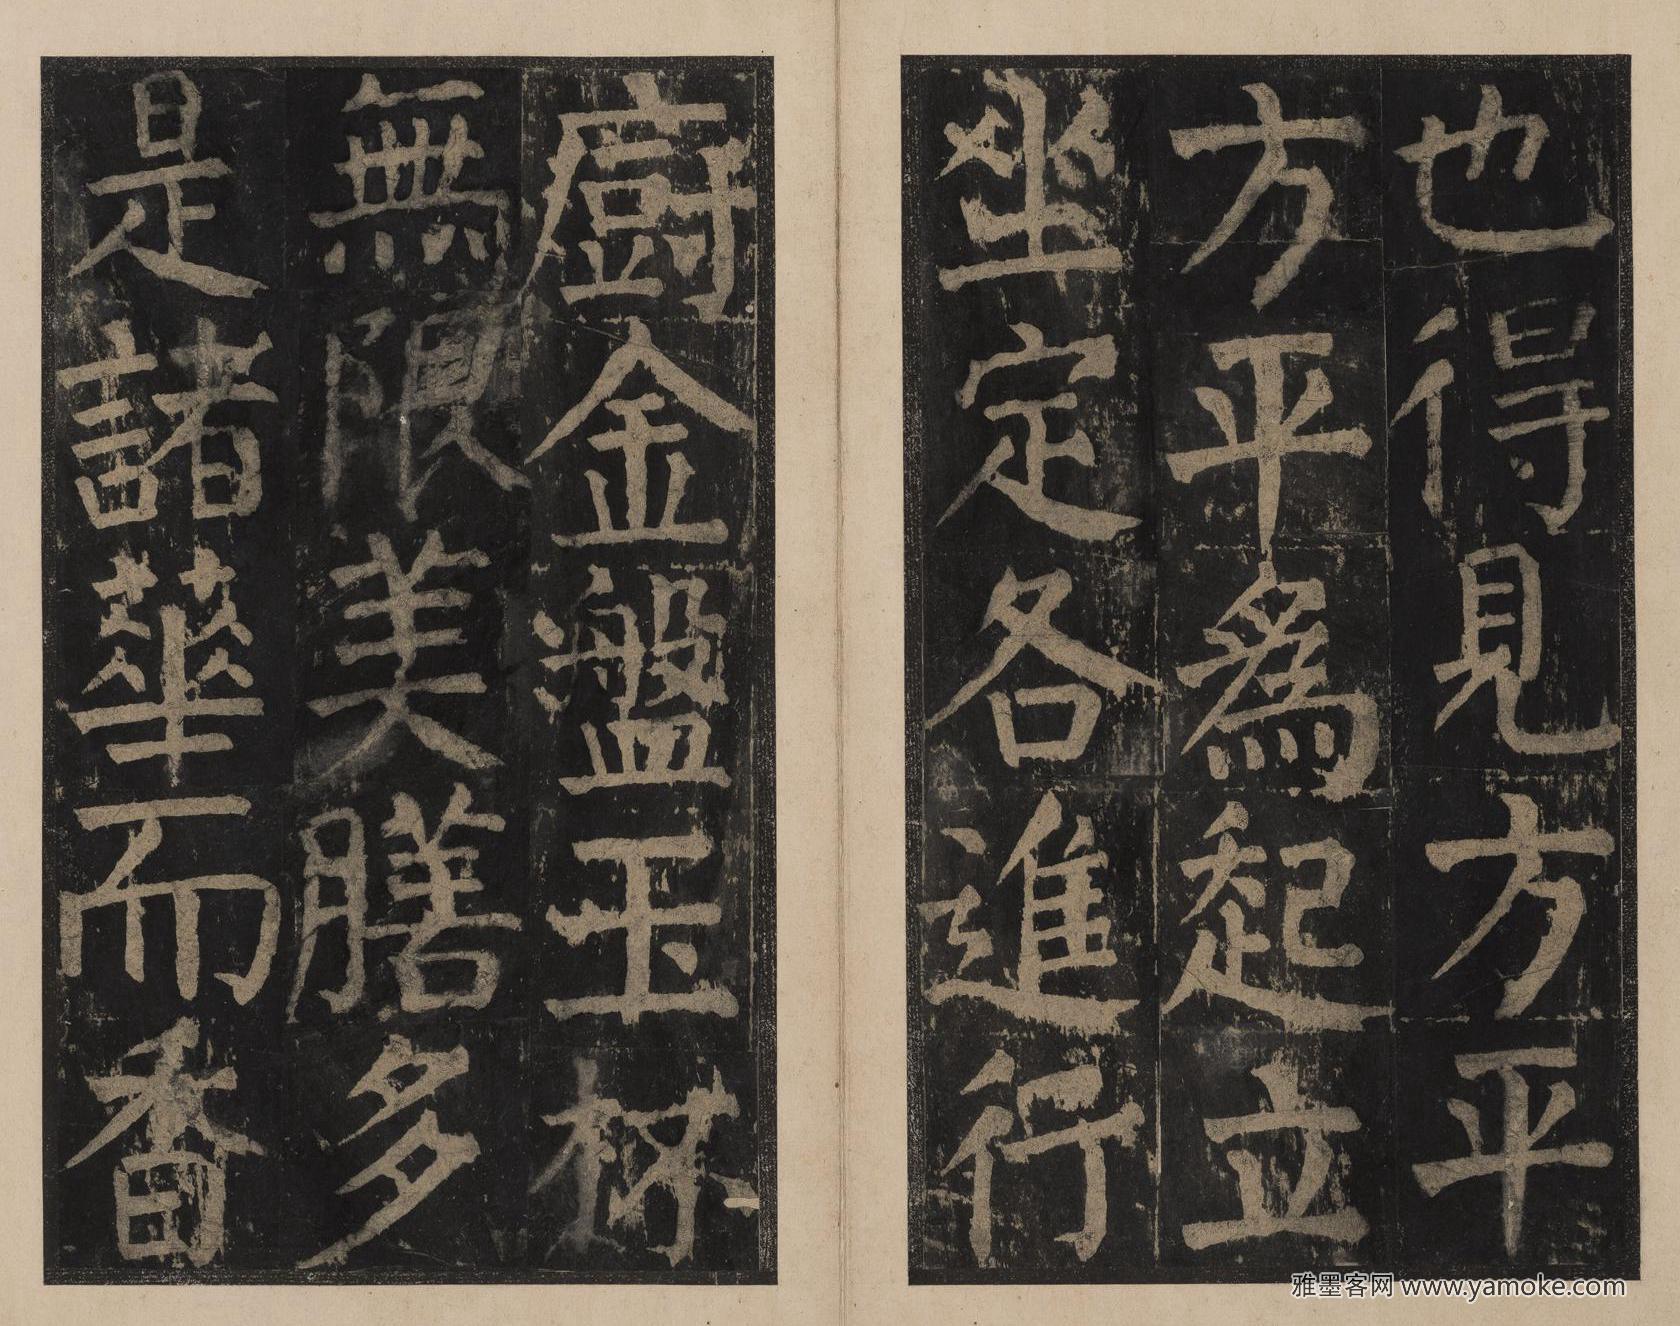 也得見方平
方平為起立
坐定各進行
廚金盤玉杯
無限美膳多
是諸華而香
雅墨客网 www.yamoke.com